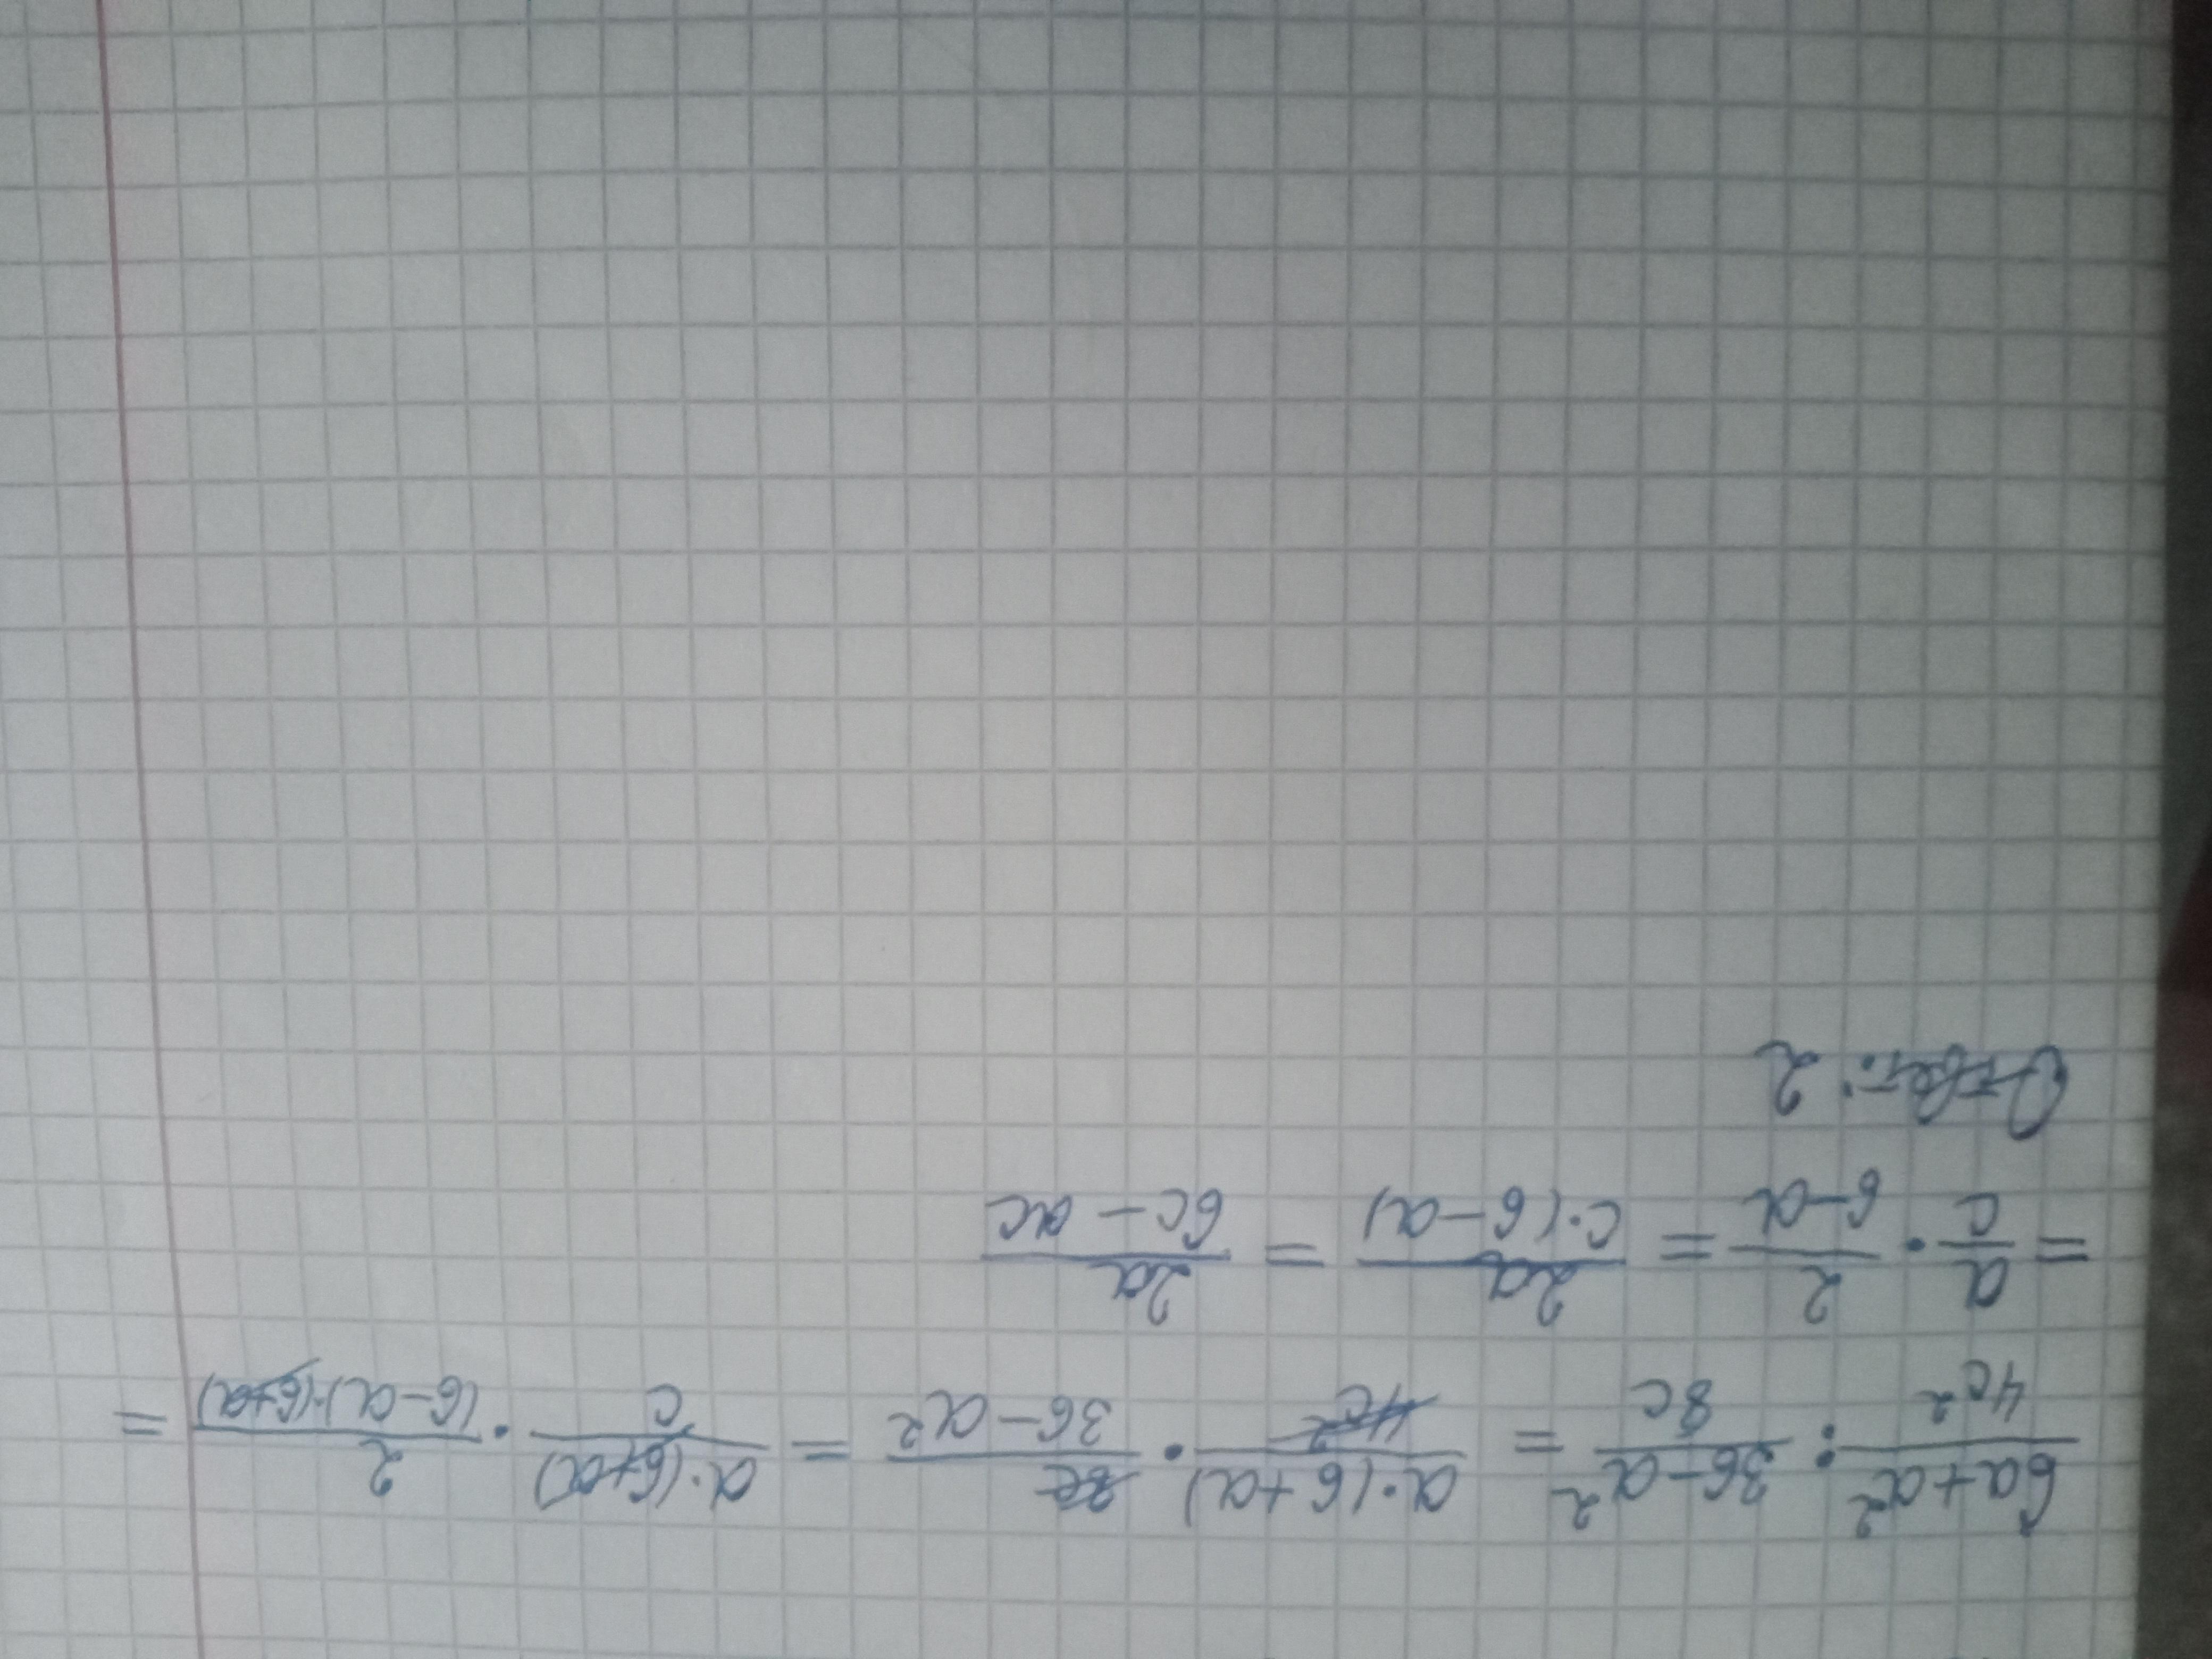 (6a+a²)/(4c²) : (36-a²)/(8c) = (a·(6+a))/(4c²) · (8c)/(36-a²) = (a·(6+a))/c · 2/((6-a)·(6+a)) =
= a/c · 2/(6-a) = 2a/(c·(6-a)) = 2a/(6c-ac)
Ответ: 2